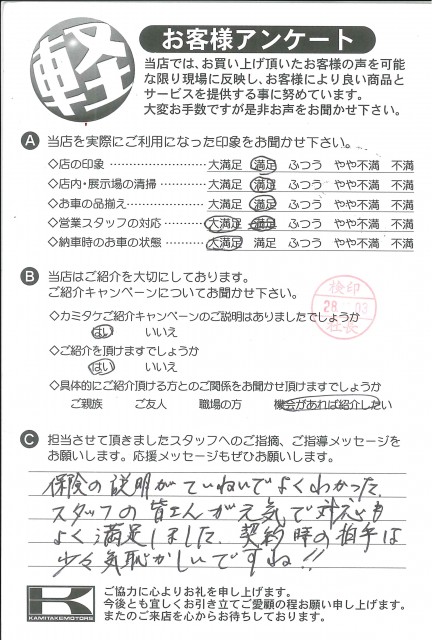 軽
お客様アンケート
当店では、お買い上げ頂いたお客様の声を可能
な限り現場に反映し、お客様により良い商品と
サービスを提供する事に努めています。
大変お手数ですが是非お声をお聞かせ下さい。
A 当店を実際にご利用になった印象をお聞かせ下さい。
◇店の印象 ………………… 大満足 満足 ふつう やや不満 不満
◇店内・展示場の清掃 ………… 大満足 満足 ふつう やや不満 不満
◇お車の品揃え ……………… 大満足 満足 ふつう やや不満 不満
◇営業スタッフの対応 ………… 大満足 満足 ふつう やや不満 不満
◇納車時のお車の状態 ………… 大満足 満足 ふつう やや不満 不満
B 当店はご紹介を大切にしております。
ご紹介キャンペーンについてお聞かせ下さい。
検印
28 03
社長
◇カミタケご紹介キャンペーンのご説明はありましたでしょうか
はい いいえ
◇ご紹介を頂けますでしょうか
はい いいえ
◇具体的にご紹介頂ける方とのご関係をお聞かせ頂けますでしょうか
ご親族 ご友人 職場の方 機会があれば紹介したい
C 担当させて頂きましたスタッフへのご指摘、ご指導メッセージを
お願いします。応援メッセージもぜひお願いします。
保険の説明がていねいでよくわかった。
スタッフの皆さんが元気で対応も
よく満足しました。契約時の拍手は
少々気恥かしいですね!!
K
KAMITAKEMOTORS
ご協力に心よりお礼を申し上げます。
今後とも宜しくお引き立てご愛顧の程お願い申し上げます。
またのご来店を心からお待ちしております。